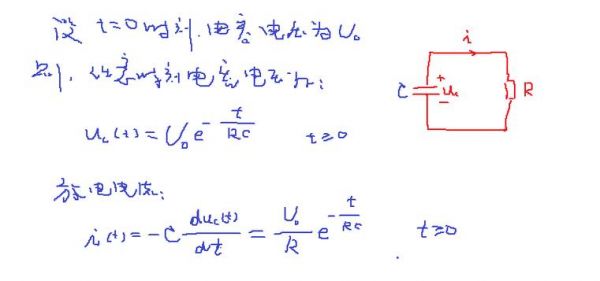 设 t=0时刻,电容电压为U₀
则,任意时刻电容电压为:
u_c(t)=U₀e^{-t/RC} t≥0
放电电流:
i(t)=-C du_c(t)/dt = U₀/R e^{-t/RC} t≥0
i
C + u_c - R